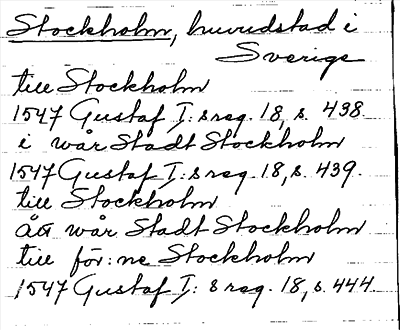 Stockholm, huvudstad i
Sverige
till Stockholm
1547 Gustaf I: s reg. 18, s. 438.
i wår Stadt Stockholm
1547 Gustaf I: s reg. 18, s. 439.
till Stockholm
åå wår Stadt Stockholm
till för: ne Stockholm
1547 Gustaf I: s reg. 18, s. 444.